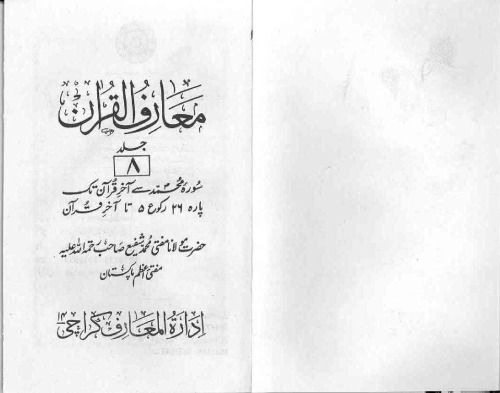 معارف القرآن
جلد
۸
سورۂ محمد سے آخر قرآن تک
پارہ ۲۶ رکوع ۵ تا آخر قرآن
حضرت مولانا مفتی محمد شفیع صاحب رحمۃ اللہ علیہ
مفتی اعظم پاکستان
ادارۃ المعارف کراچی ۱۴